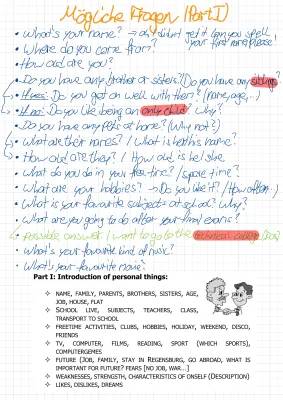 Mögliche Fragen (Part I)
• What's your name? → oh, I didn't get it can you spell
your first name please!
• Where do you come from?
• How old are you?
• Do you have any brother or sisters? (Do you have any siblings?
→ If yes: Do you get on well with them? (name, age, ..)
→ If no: Do you like being an only child? Why?
• Do you have any pets at home? (Why not?)
→ What are their names? / What is her/his name?
→ How old are they? / How old is he/she
• What do you do in your free time? / spare time?
• What are your hobbies? → Do you like it? / How often..)
• What is your favourite subject at school? Why?
• What are you going to do after your final exams?
→ possible answer: I want to go to the college (BOS)
• What's your favourite kind of music?
• What's your favourite movie?
Part I: Introduction of personal things:
❖ NAME, FAMILY, PARENTS, BROTHERS, SISTERS, AGE,
JOB, HOUSE, FLAT
❖ SCHOOL LIVE, SUBJECTS, TEACHERS, CLASS,
TRANSPORT TO SCHOOL
❖ FREETIME ACTIVITIES, CLUBS, HOBBIES, HOLIDAY, WEEKEND, DISCO,
FRIENDS
❖ TV, COMPUTER, FILMS, READING, SPORT (WHICH SPORTS),
COMPUTERGEMES
❖ FUTURE (JOB, FAMILY, STAY IN REGENSBURG, GO ABROAD, WHAT IS
IMPORTANT FOR FUTURE? FEARS [NO JOB, WAR...]
❖ WEAKNESSES, STRENGSTH, CHARACTERISTICS OF ONSELF (DESCRIPTION)
❖ LIKES, DISLIKES, DREAMS